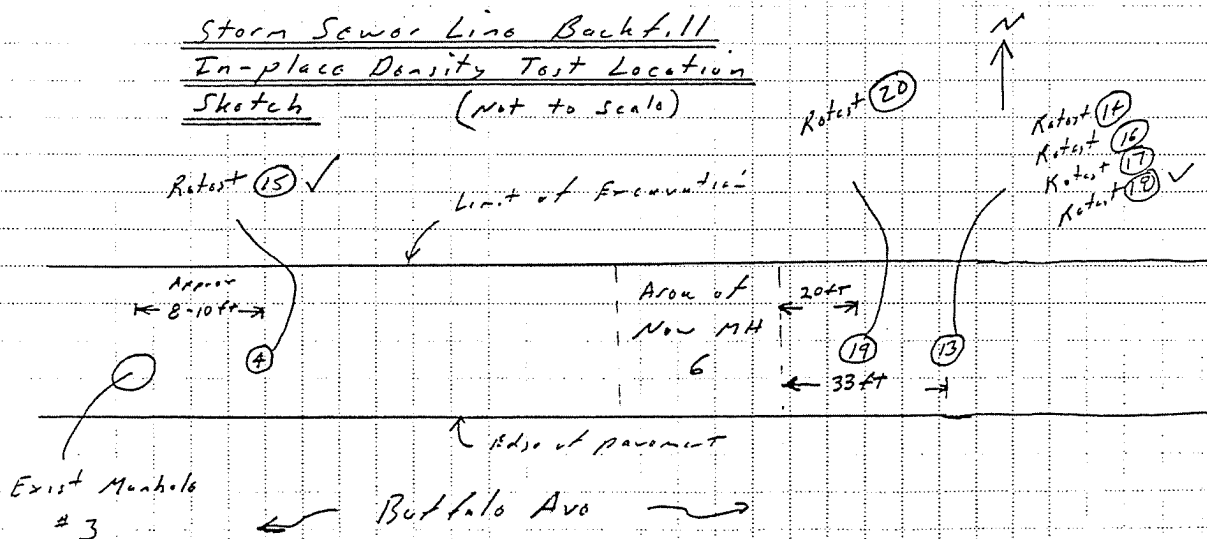 Storm Sewer Line Backfill
In-place Density Test Location
Sketch (Not to scale)
N
Retest 20
Retest 14
Retest 16
Retest 17
Retest 18 ✓
Retest 15 ✓
Limit of Excavation
Approx
8-10 ft
Area of
New MH
6
20 ft
4
19
13
33 ft
Edge of pavement
Exist Manhole
# 3
Buffalo Ave